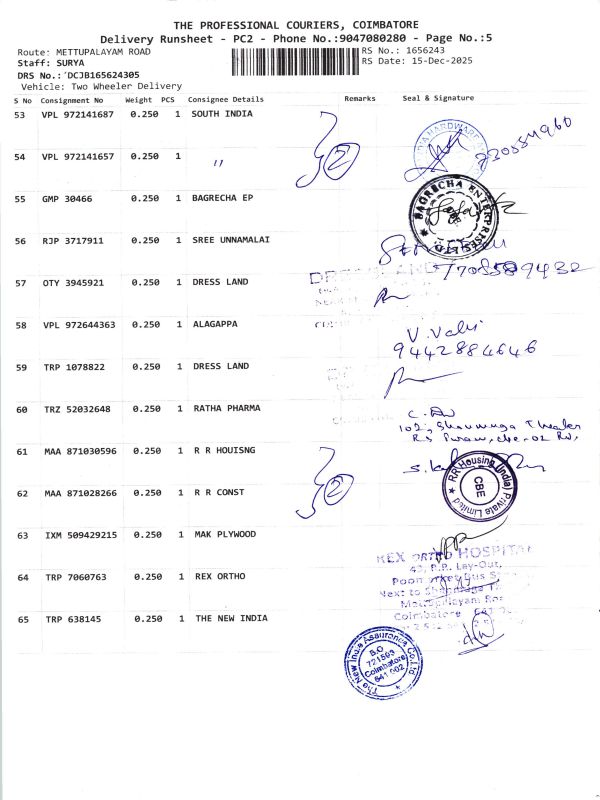 THE PROFESSIONAL COURIERS, COIMBATORE
Delivery Runsheet - PC2 - Phone No.:9047080280 - Page No.:5
Route: METTUPALAYAM ROAD
RS No.: 1656243
Staff: SURYA
RS Date: 15-Dec-2025
DRS No.:´DCJB165624305
Vehicle: Two Wheeler Delivery
S No Consignment No Weight PCS Consignee Details Remarks Seal & Signature
53 VPL 972141687 0.250 1 SOUTH INDIA
54 VPL 972141657 0.250 1 " 2
55 GMP 30466 0.250 1 BAGRECHA EP
BAGRECHA ENTERPRISES LTD
56 RJP 3717911 0.250 1 SREE UNNAMALAI
57 OTY 3945921 0.250 1 DRESS LAND
58 VPL 972644363 0.250 1 ALAGAPPA
9442884646
59 TRP 1078822 0.250 1 DRESS LAND
60 TRZ 52032648 0.250 1 RATHA PHARMA
102, Shanmuga Theater
61 MAA 871030596 0.250 1 R R HOUISNG
62 MAA 871028266 0.250 1 R R CONST 2
RR Housing (India) Private Limited
CBE
63 IXM 509429215 0.250 1 MAK PLYWOOD
64 TRP 7060763 0.250 1 REX ORTHO
REX ORTHO HOSPITAL
43, P.R. Lay-Out,
Next to
Coimbatore
65 TRP 638145 0.250 1 THE NEW INDIA
The New India Assurance Co. Ltd
B.O.
721503
Coimbatore
641 002